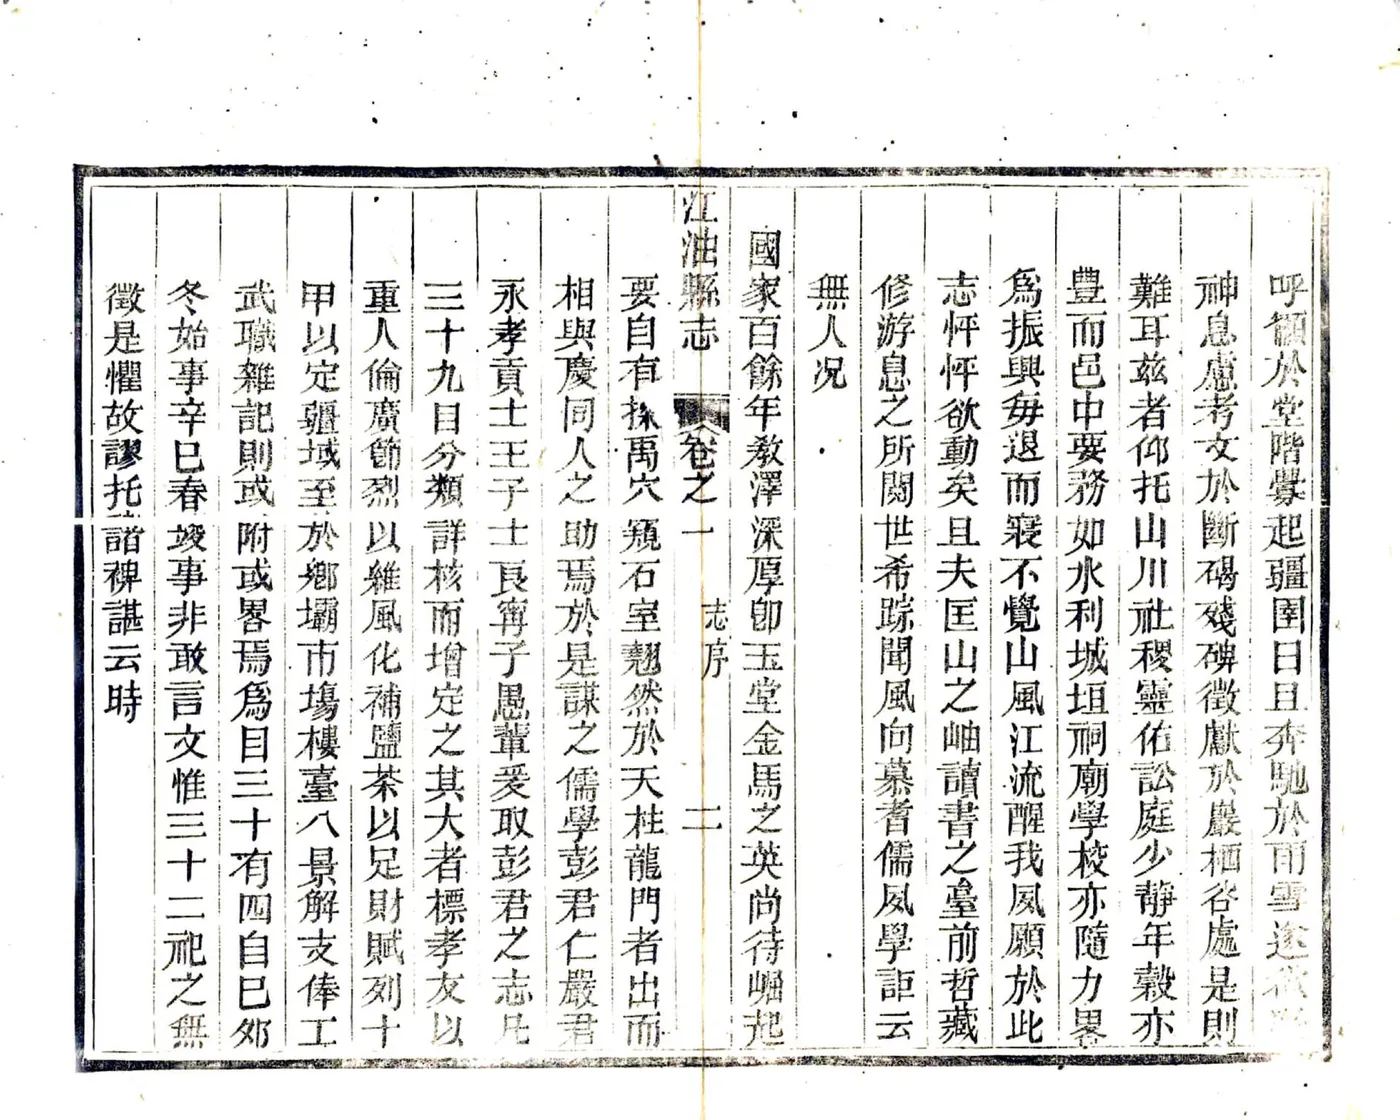 呼籲於堂階釁起疆圉日且奔馳於雨雪遂我
神息慮考文於斷碣殘碑徵獻於巖栖谷處是則
難耳玆者仰托山川社稷靈佑訟庭少靜年穀亦
豐而邑中要務如水利城垣祠廟學校亦隨力畧
爲振興每退而寢不覺山風江流醒我夙願於此
志怦怦欲動矣且夫匡山之岫讀書之臺前哲藏
修游息之所闊世希踪聞風向慕者儒夙學詎云
無人况
國家百餘年教澤深厚卽玉堂金馬之英尚待崛起
江油縣志 卷之一 志序 二
要自有探禹穴窺石室翹然於天柱龍門者出而
相與慶同人之助焉於是謀之儒學彭君仁嚴君
永孝貢士王子士良寗子愚輩爰取彭君之志凡
三十九目分類詳核而增定之其大者標孝友以
重人倫廣節烈以維風化補鹽茶以足財賦列十
甲以定疆域至於鄉壩市塲樓臺八景解支俸工
武職雜記則或附或畧焉爲目三十有四自巳夘
冬始事辛巳春竣事非敢言文惟三十二祀之無
徵是懼故謬托諳裨諶云時